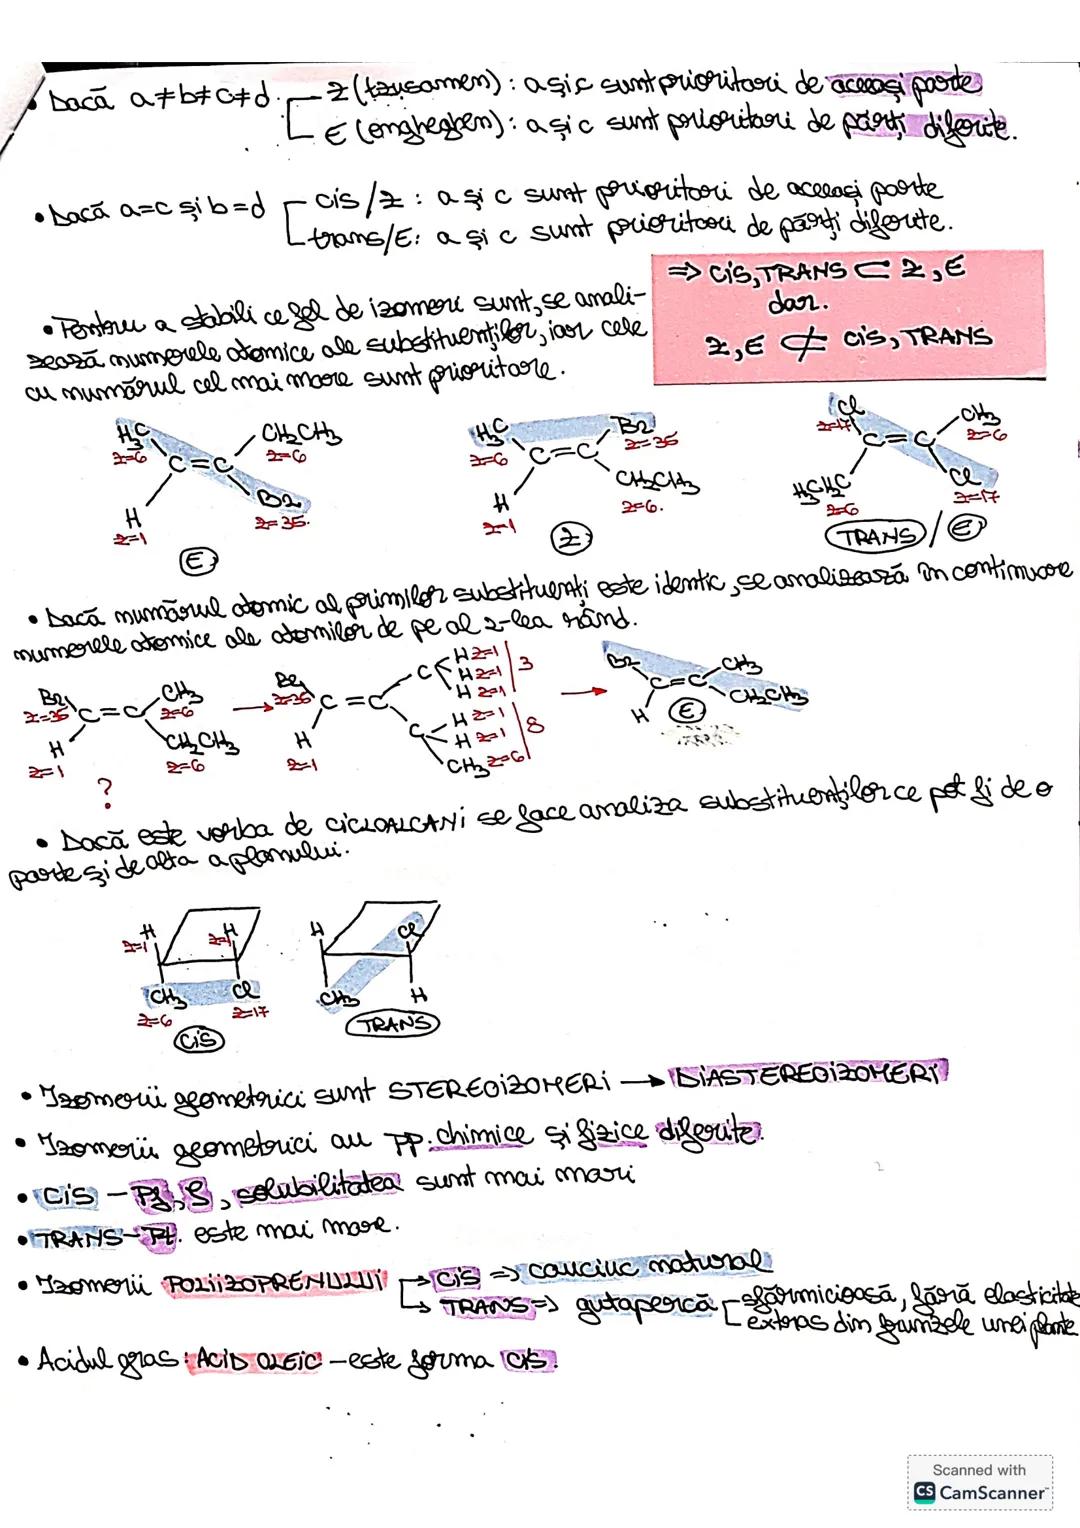 • Dacă a≠b≠c≠d. Z (tzusamen): a și c sunt prioritari de aceeași parte
E (engheghen): a și c sunt prioritari de părți diferite.
• Dacă a=c și b=d cis/Z: a și c sunt prioritari de aceeași parte
trans/E: a și c sunt prioritari de părți diferite.
⇒ CiS, TRANS ⊂ Z, E
dar.
Z, E ⊄ CiS, TRANS
• Pentru a stabili ce fel de izomeri sunt, se anali-
zează numerele atomice ale substituenților, iar cele
cu numărul cel mai mare sunt prioritare.
H₃C CH₂CH₃
Z=6 Z=6
C=C
H Br
Z=1 Z=35.
E
H₃C Br
Z=6 Z=35
C=C
H CH₂CH₃
Z=1 Z=6.
Z
Cl CH₃
Z=17 Z=6
C=C
H₃CH₂C Cl
Z=6 Z=17
TRANS / E
• Dacă numărul atomic al primilor substituenți este identic, se analizează în continuare
numerele atomice ale atomilor de pe al 2-lea rând.
Br CH₃
Z=35 C=C Z=6
H CH₂CH₃
Z=1 Z=6
?
Br C H Z=1
Z=35 H Z=1 3
H Z=1
C=C
H C H Z=1
Z=1 H Z=1 8
CH₃ Z=6
Br CH₃
C=C
H CH₂CH₃
E
• Dacă este vorba de CiCLOALCANi se face analiza substituenților ce pot fi de o
parte și de alta a planului.
H H
Z=1 Z=1
CH₃ Cl
Z=6 Z=17
CiS
H Cl
CH₃ H
TRANS
• Izomerii geometrici sunt STEREOiZOMERi → DiASTEREOiZOMERi
• Izomerii geometrici au pp. chimice și fizice diferite.
• CiS – Pf, ρ, solubilitatea sunt mai mari
• TRANS – Pt. este mai mare.
• Izomerii POLiiZOPRENULUi → CiS ⇒ cauciuc natural
→ TRANS ⇒ gutapercă sfărmicioasă, fără elasticitate
extras din frunzele unei plante
• Acidul gras: ACiD OLEiC – este forma CiS.
Scanned with
CS CamScanner